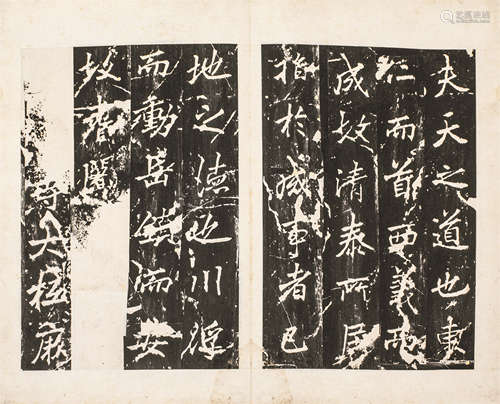 夫天之道也東
仁而首西義而
成故清泰所居
指於成事者已
地之德也川浮
而動岳鎮而安
故耆闍
寺大抵厥